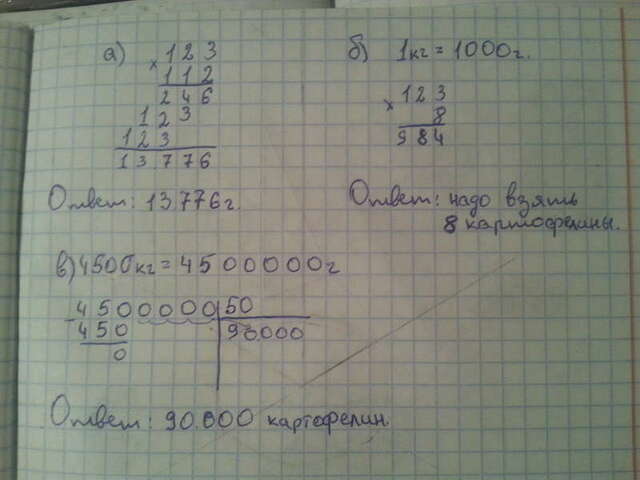 а) 123
× 112
246
123
123
13776
Ответ: 13776г.
б) 1кг = 1000г.
123
× 8
984
Ответ: надо взять
8 картофелины.
в) 4500кг = 4500000г
- 4500000 50
450 90000
0
Ответ: 90.000 картофелин.